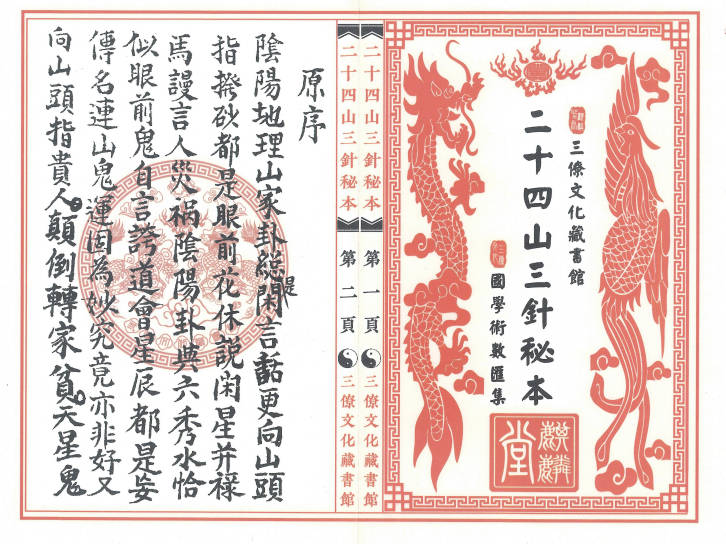 三僚文化藏書館
二十四山三針秘本
國學術數匯集
麒麟堂
二十四山三針秘本 第一頁 三僚文化藏書館
二十四山三針秘本 第二頁 三僚文化藏書館
原序
陰陽地理山家卦總是閑言話更向山頭
指撥砂都是眼前花休説闲星并禄
馬謾言人災禍陰陽卦與六秀水恰
似眼前鬼自言誇道會星辰都是妄
傳名連山鬼運因為妙究竟亦非好又
向山頭指貴人顛倒轉家貧天星鬼